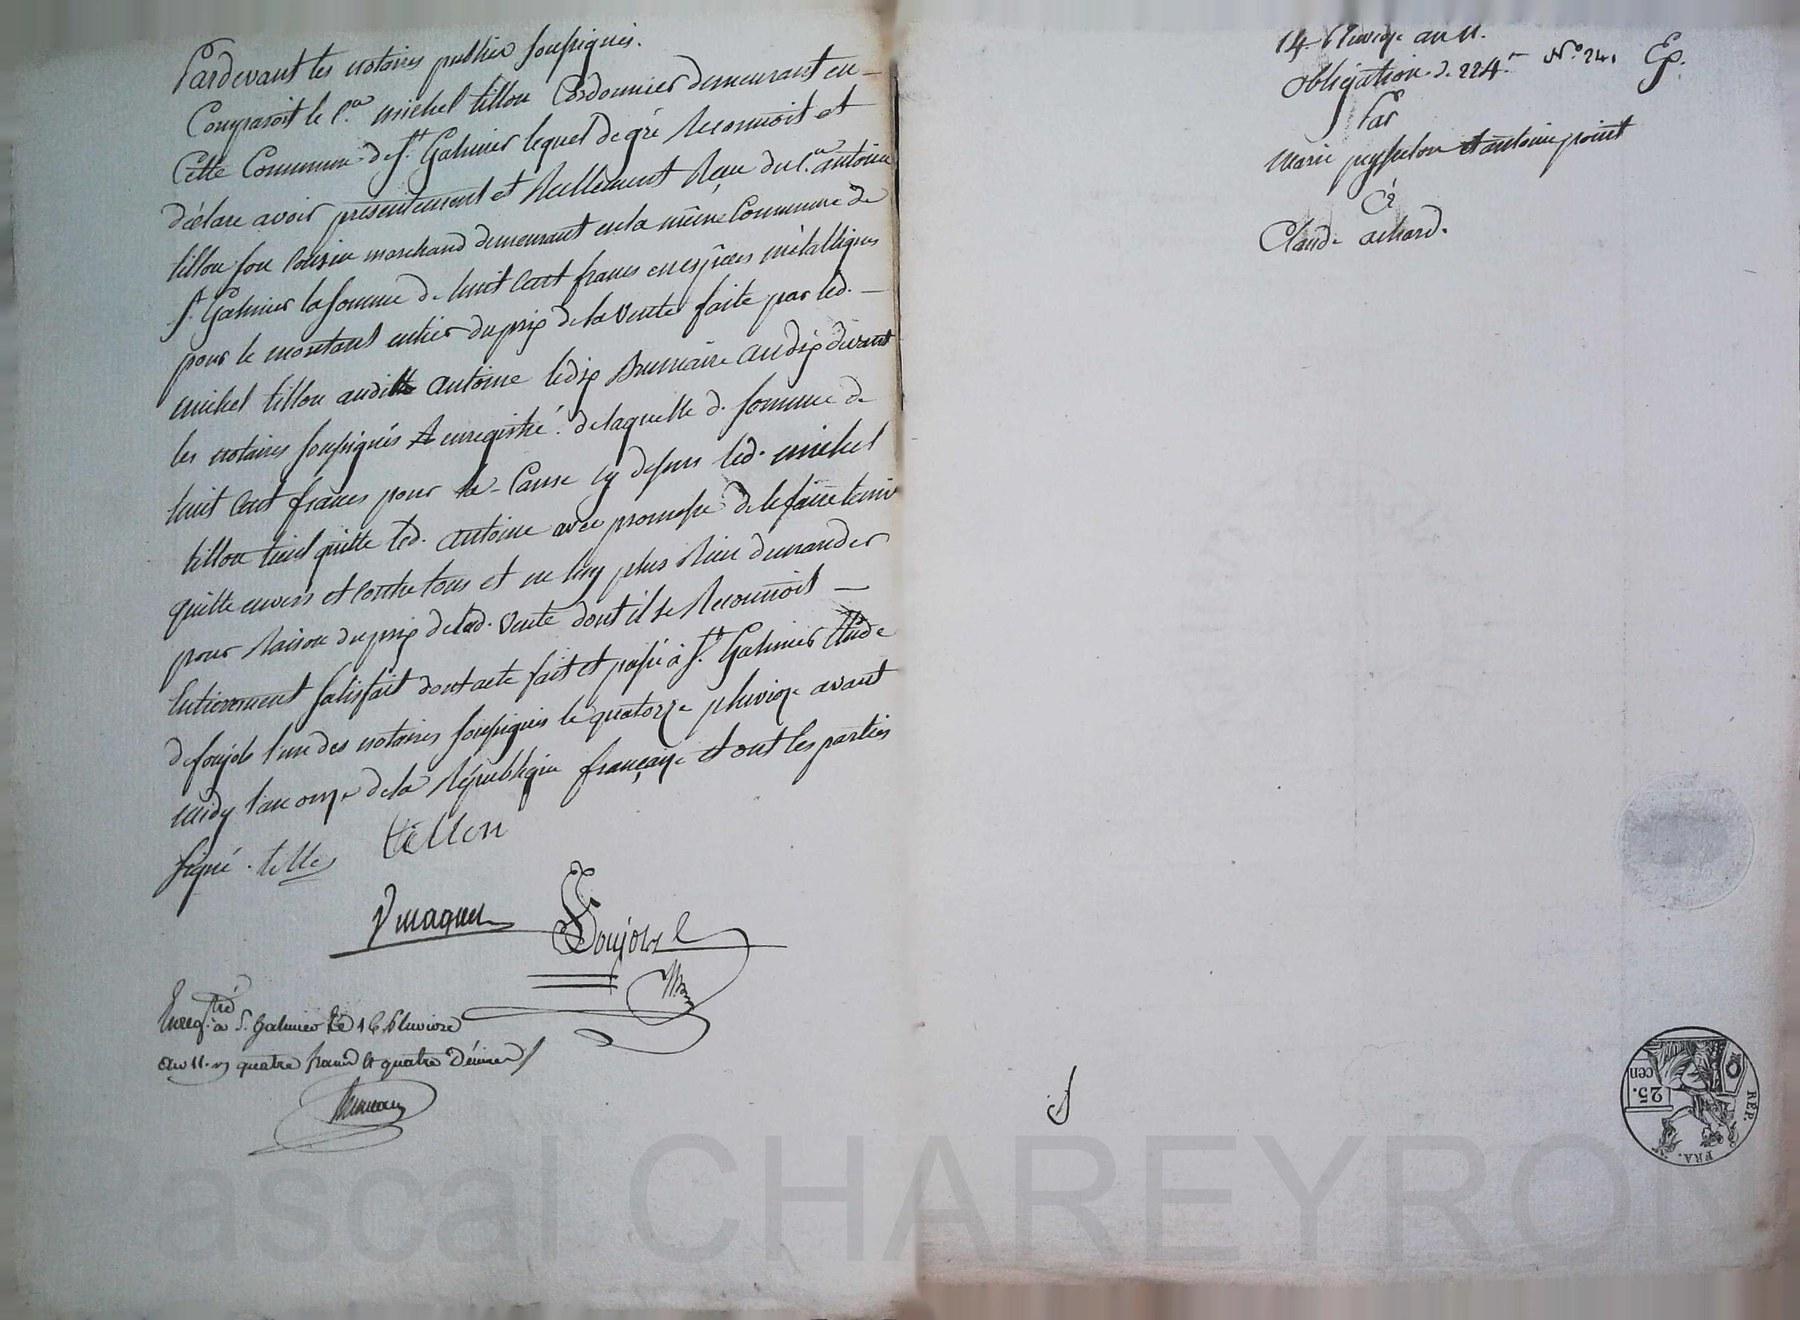 Pardevant les notaires publics soussignés.
Comparoit le C.en michel tillon Cordonnier demeurant en
Cette Commune de St. Galmier lequel de gré Reconnoit et
déclare avoir présentement et Réellement Reçu du C.en antoine
tillon son Cousin marchand demeurant en la même Commune de
St. Galmier la somme de huit Cent francs en espèces métalliques
pour le montant entier du prix de la vente faite par led.
michel tillon audit antoine le dix Brumaire an dix devant
les notaires soussignés enregistré. de laquelle d. somme de
huit Cent francs pour la Cause cy dessus led. michel
tillon tient quitte led. antoine avec promesse de le faire tenir
quitte envers et Contre tous et ne luy plus Rien demander
pour Raison du prix de lad. vente dont il se Reconnoit
Entierement satisfait dont acte fait et passé à St. Galmier Etude
de foujols l'un des notaires soussignés le quatorze pluviose avant
midy l'an onze de la République française et ont les parties
signé.
tillon
foujols
Enregtré à S. Galmier le 16 Pluviose
an 11. quatre francs et quatre Décimes
14 Pluviose an 11.
obligation d. 224.
N.o 24.
Par
marie peysselon et antoine point
à
Claude achard.
RÉP. FRA.
25. cen
Pascal CHAREYRON